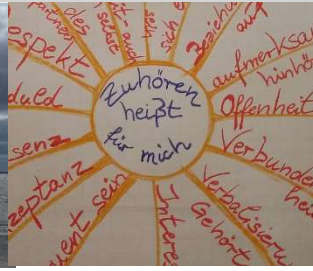 Zuhören
heißt
für mich
espekt
duld
senz
zeptanz
uent sein
Interes
Verbalisieru
Gehört
Verbunden
hei
Offenheit
aufmerksa
hinhö
Beziehu
auf
sich
sein
des